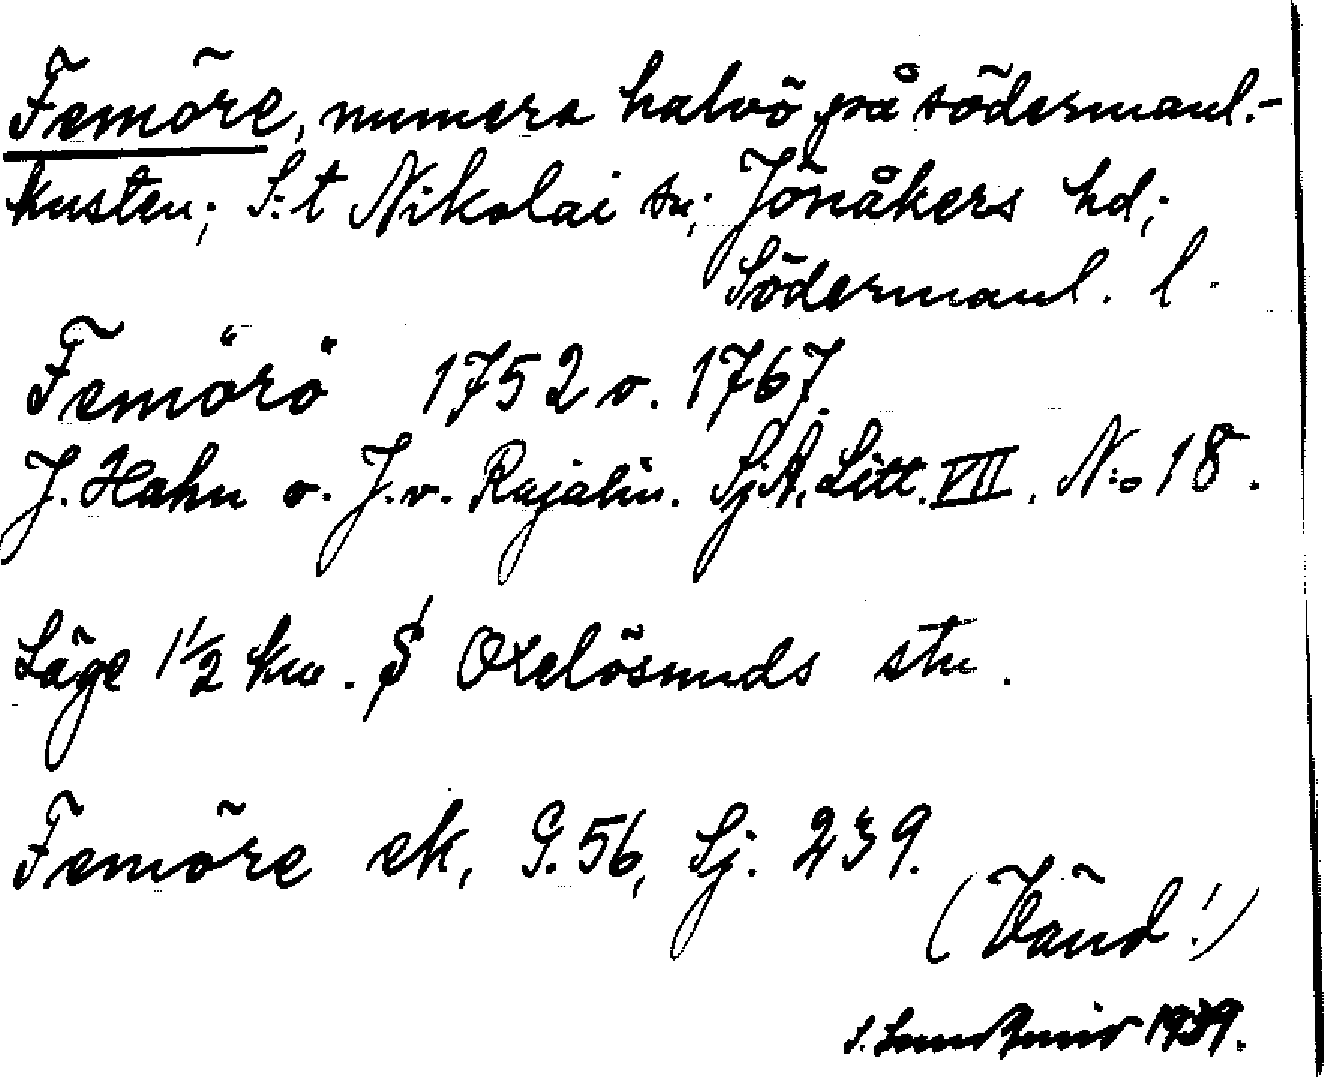 Femöre, numera halvö på södermanl.-
kusten; S:t Nikolai sn; Jönåkers hd;
Södermanl. l.
Femörö 1752 o. 1767.
J. Hahn o. J. v. Rajalin. SjA. Litt. VII. N:o 18.
Läge 1 1/2 km. S Oxelösunds stn.
Femöre ek, G. 56, Sj. 239.
(Vänd!)
1939.